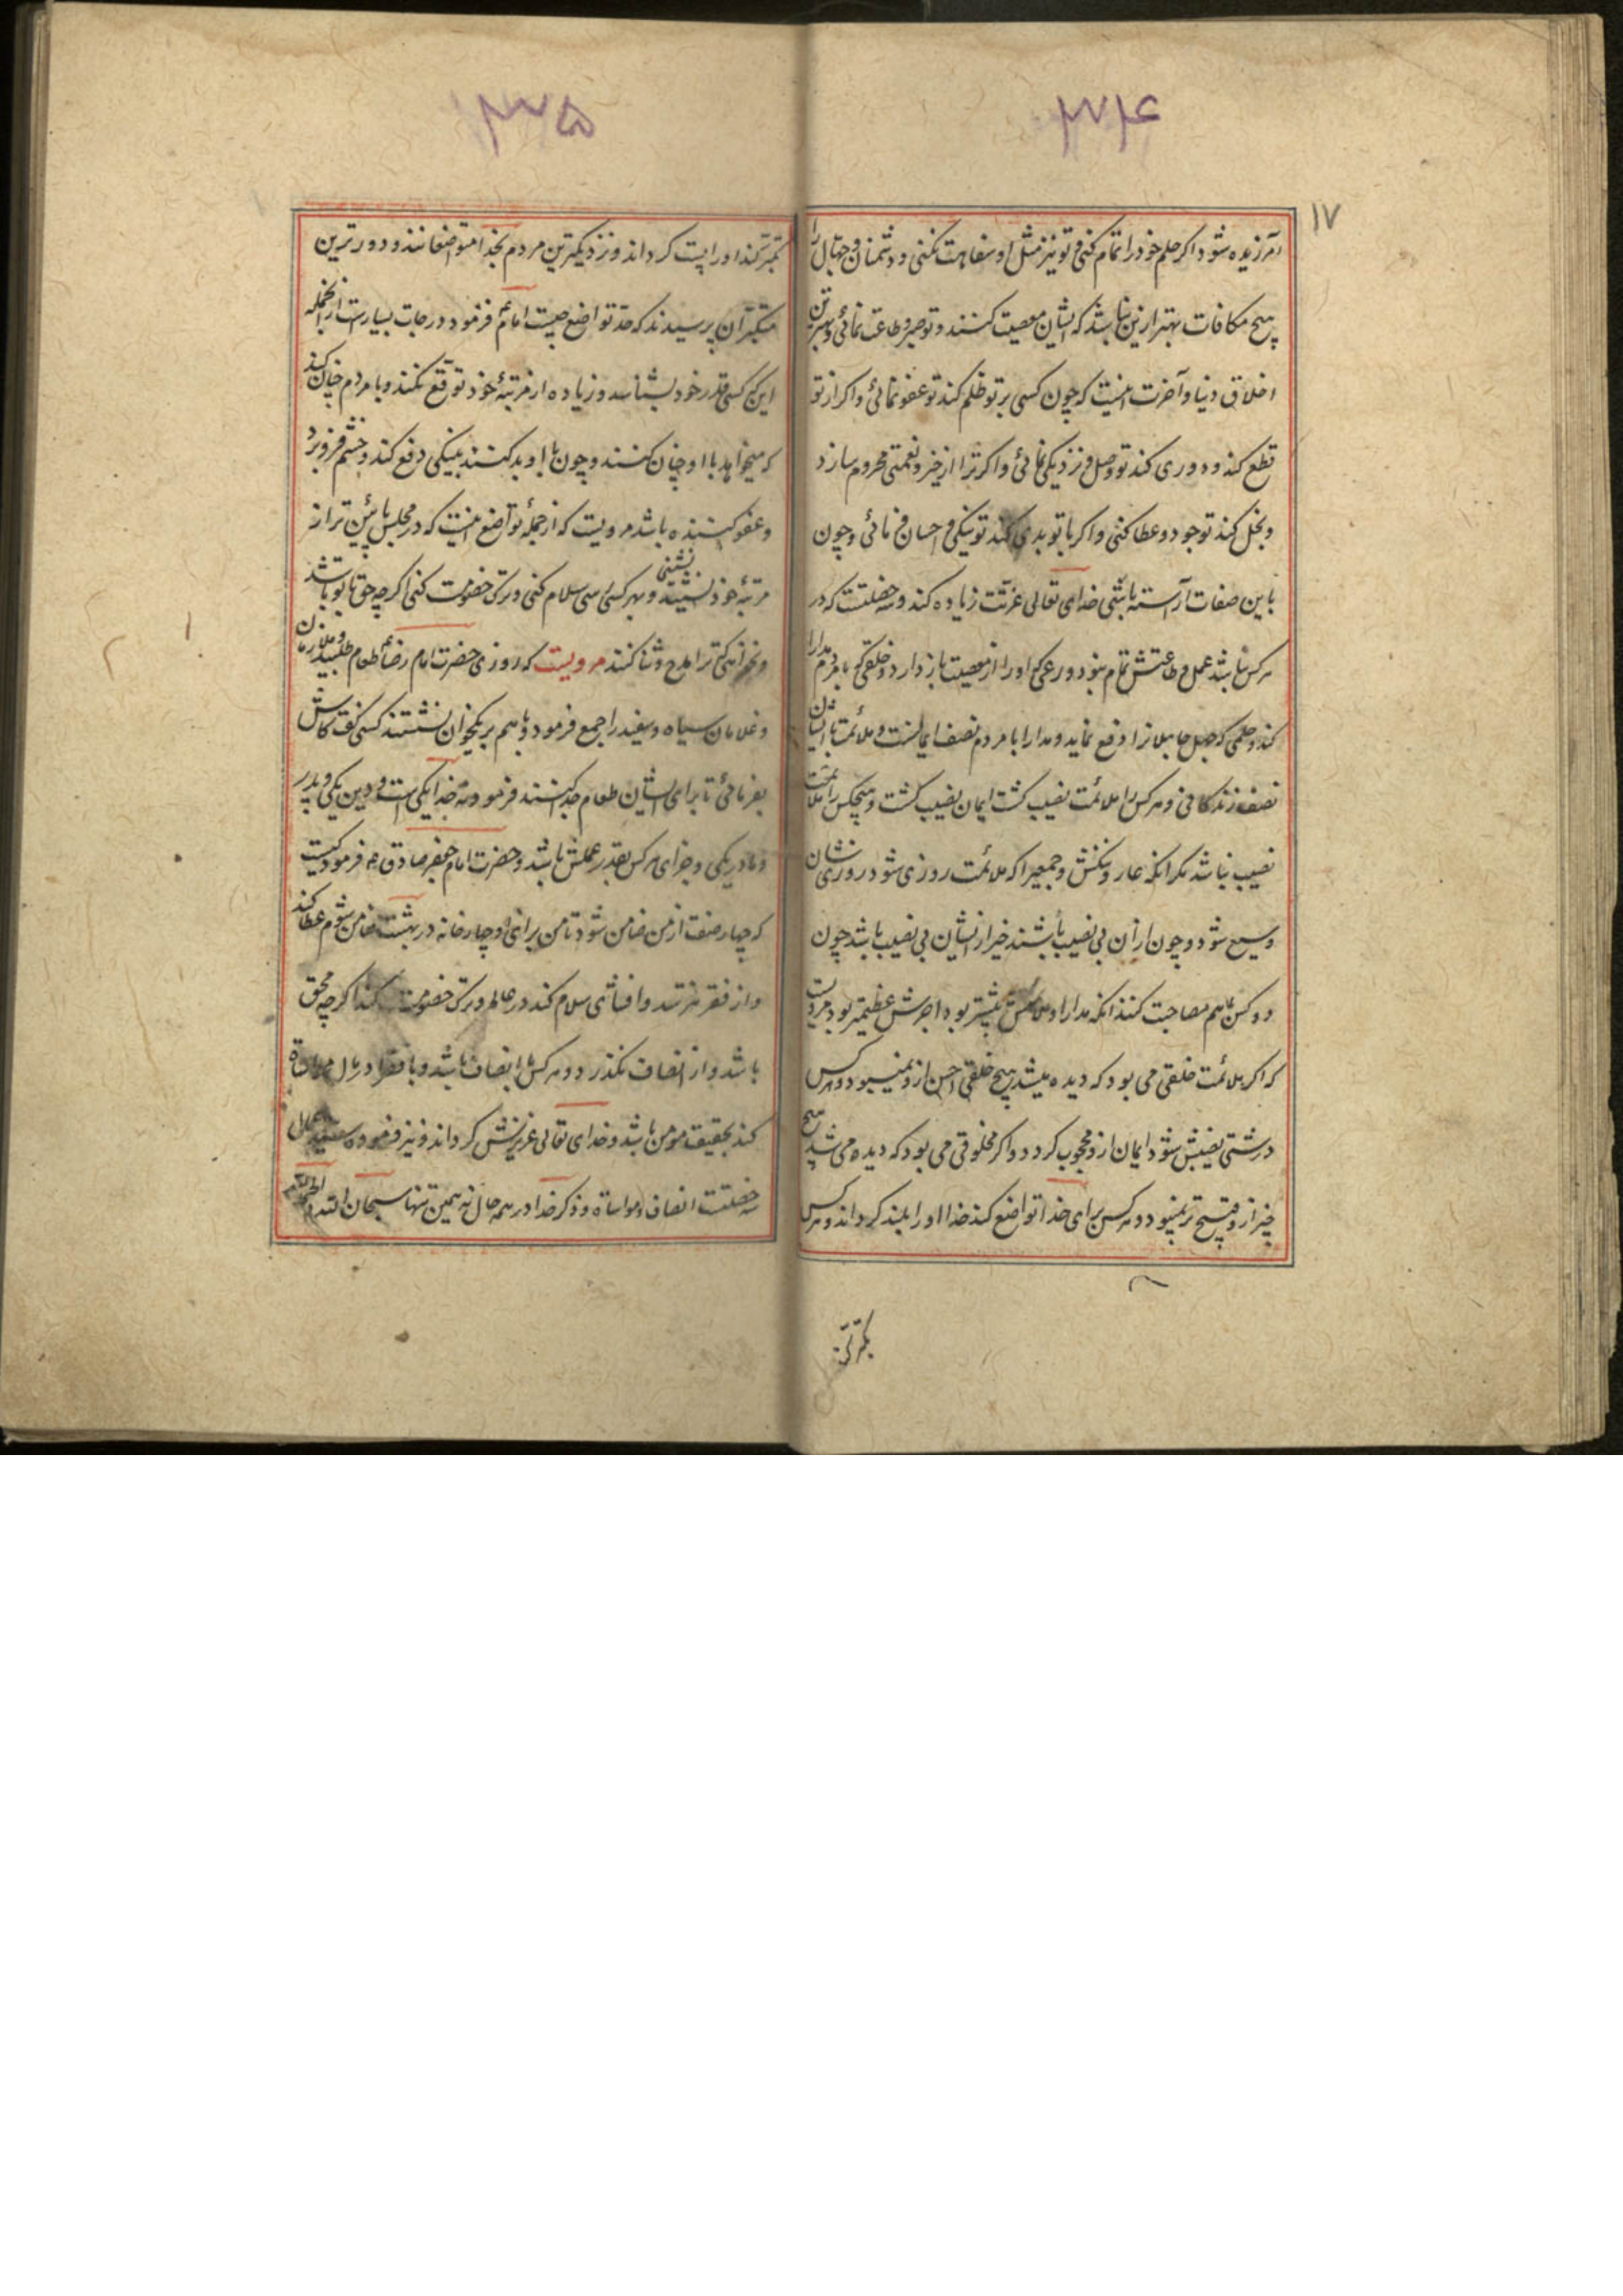 ۳۷۴
۱۷
آمرزیده شود اکر حلم خود را تمام کنی و تو نیز مثل او سفاهت نکنی و دشمنان و جهال را
هیچ مکافات بهتر ازین نباشد که ایشان معصیت کنند و تو صبر و طاعت نمائی و بهترین
اخلاق دنیا و آخرت اینست که چون کسی بر تو ظلم کند تو عفو نمائی و اکر از تو
قطع کند و دوری کند تو وصل و نزدیکی نمائی و اکر ترا از خیر و نعمتی محروم سازد
و بخل کند تو جود و عطا کنی و اکر با تو بدی کند تو نیکی و احسان فرمائی و چون
باین صفات آراسته باشی خدای تعالی عزتت زیاده کند و سه خصلتست که در
هر کس نباشد عمل و طاعتش تمام نبود ورعی که او را از معصیت باز دارد و خلقی که با مردم مدارا
کند و حلمی که جهل جاهلانرا دفع نماید و مدارا با مردم نصف ایمانست و ملائمت با ایشان
نصف زندکانی و هر کس را ملائمت نصیب کشت ایمان نصیب کشت و هیچکس را ملائمت
نصیب نباشد مکر آنکه عار و نکنش و جمعیرا که ملائمت روزی شود روزی شان
وسیع شود و چون از آن بی نصیب باشند خیر از ایشان بی نصیب باشد چون
دو کس باهم مصاحبت کنند آنکه مدارا و ملائمتش بیشتر بود اجرش عظیمتر بود مرویست
که اکر ملائمت خلقی می بود که دیده میشد هیچ خلقی احسن ازو نمیبود و هر کس
درشتی نصیبش شود ایمان ازو محجوب کردد و اکر مخلوقی می بود که دیده می شد هیچ
چیز ازو قبیح تر نمیبود و هر کس برای خدا تواضع کند خدا او را بلند کرداند و هر کس
تکبر کند
۳۷۵
تکبر کند او را پست کرداند و نزدیکترین مردم بخدا متواضعانند و دورترین
متکبران پرسیدند که حد تواضع چیست امام فرمود درجات بسیار است از آنجمله
این که کسی قدر خود بشناسد و زیاده از مرتبهٔ خود توقع نکند و با مردم چنان کند
که میخواهد با او چنان کنند و چون با او بد کنند بنیکی دفع کند و خشم فرو برد
و عفو کننده باشد مرویست که از جملهٔ تواضع اینست که در مجلس پائین تر از
مرتبهٔ خود نشینند بنشینی و بهر کس رسی سلام کنی و ترک خصومت کنی اکر چه حق با تو باشد
و نخواهی که ترا مدح و ثنا کنند مرویست که روزی حضرت امام رضا طعام طلبید و ملازمان
و غلامان سیاه و سفید را جمع فرمود و باهم بر یکخوان نشستند کسی کفت کاش
بفرمائی تا برای ایشان طعام جدا کنند فرمود مه خدا یکی است و دین یکی و پدر
و مادر یکی و جزای هر کس بقدر عملش باشد و حضرت امام جعفر صادق ع فرمود کیست
که چهار صفت از من ضامن شود تا من برای او چهار خانه در بهشت ضامن شوم عطا کند
و از فقر نترسد و افشای سلام کند در عالم و ترک خصومت کند اکر چه محق
باشد و از انصاف نکذرد و هر کس با انصاف باشد و با فقرا در مال مواساة
کند بحقیقت مومن باشد و خدای تعالی عزیزش کرداند و نیز فرموده اعمال
سه خصلتست انصاف و مواساة و ذکر خدا در همه حال نه همین تنها سبحان الله و الحمد لله